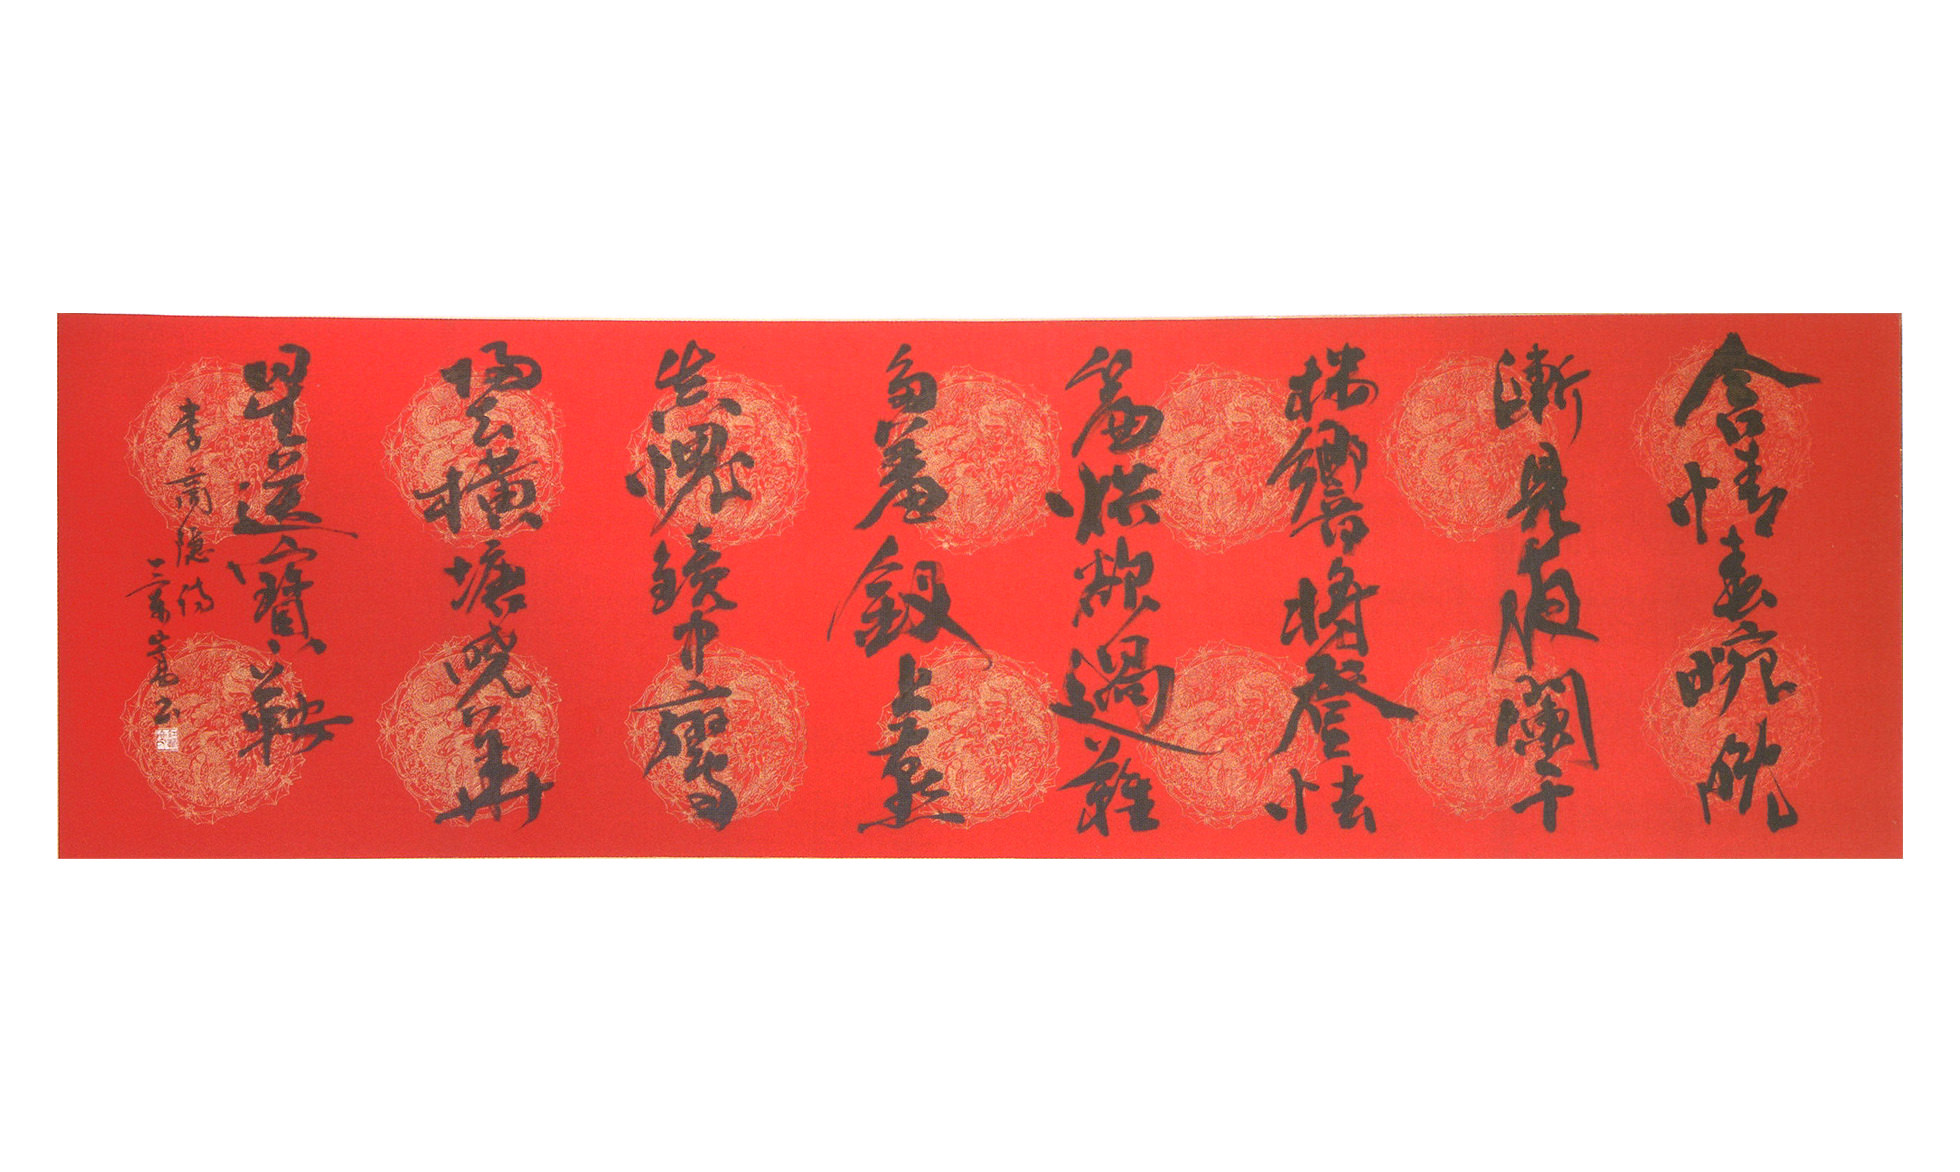 含情春晼晚
漸見夜闌干
樓響將登怯
簾烘欲過難
多羞釵上燕
真愧鏡中鸞
歸去橫塘曉華
星送寶鞍
李商隱詩
書